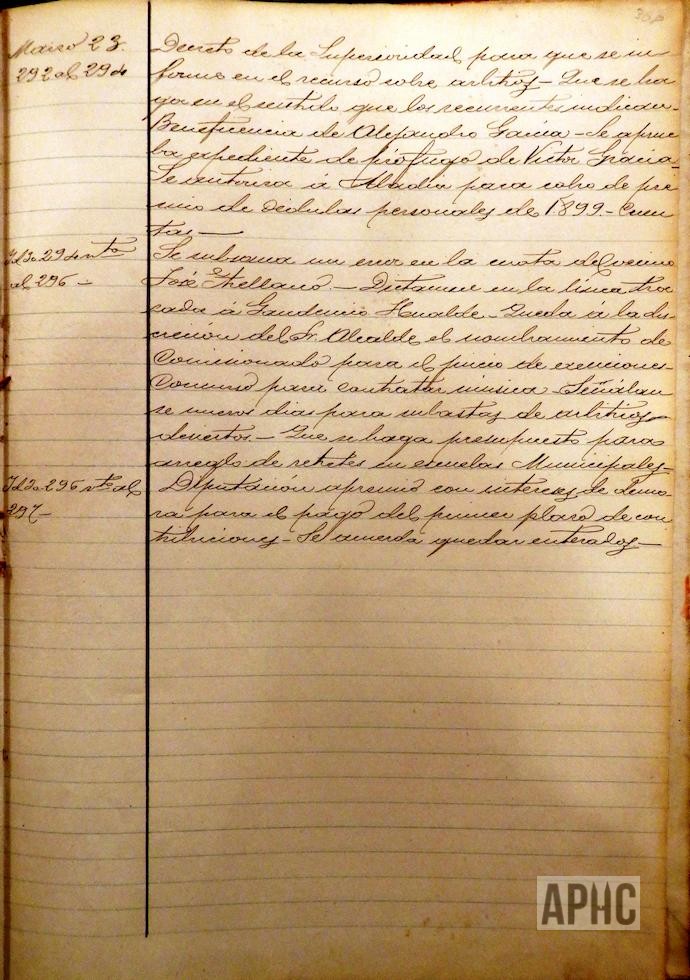 Marzo 23.
292 al 294
Decreto de la Superioridad para que se in-
forme en el recurso sobre arbitrios - Que se ha-
ga en el sentido que los recurrentes indican -
Beneficencia de Alejandro García - Se aprue-
ba expediente de prófugo de Victor Gracia -
Se autoriza á Abadía para cobro de pre-
mio de cédulas personales de 1899 - Cuen-
tas -
Id 30 294 vto
al 296 -
Se subsana un error en la cuota del vecino
José Atellano - Dictamen en la línea tra-
zada á Gaudencio Hualde - Queda á la dis-
creción del Sr. Alcalde el nombramiento de
Comisionado para el juicio de exenciones
Concurso para contratar música - Señálan-
se nuevos dias para subastas de arbitrios
desiertos - Que se haga presupuesto para
arreglo de retretes en escuelas Municipales -
Id 30 296 vto al
297 -
Diputación apremió con intereses de demo-
ra para el pago del primer plazo de con-
tribuciones - Se acuerda quedar enterados -
APHC